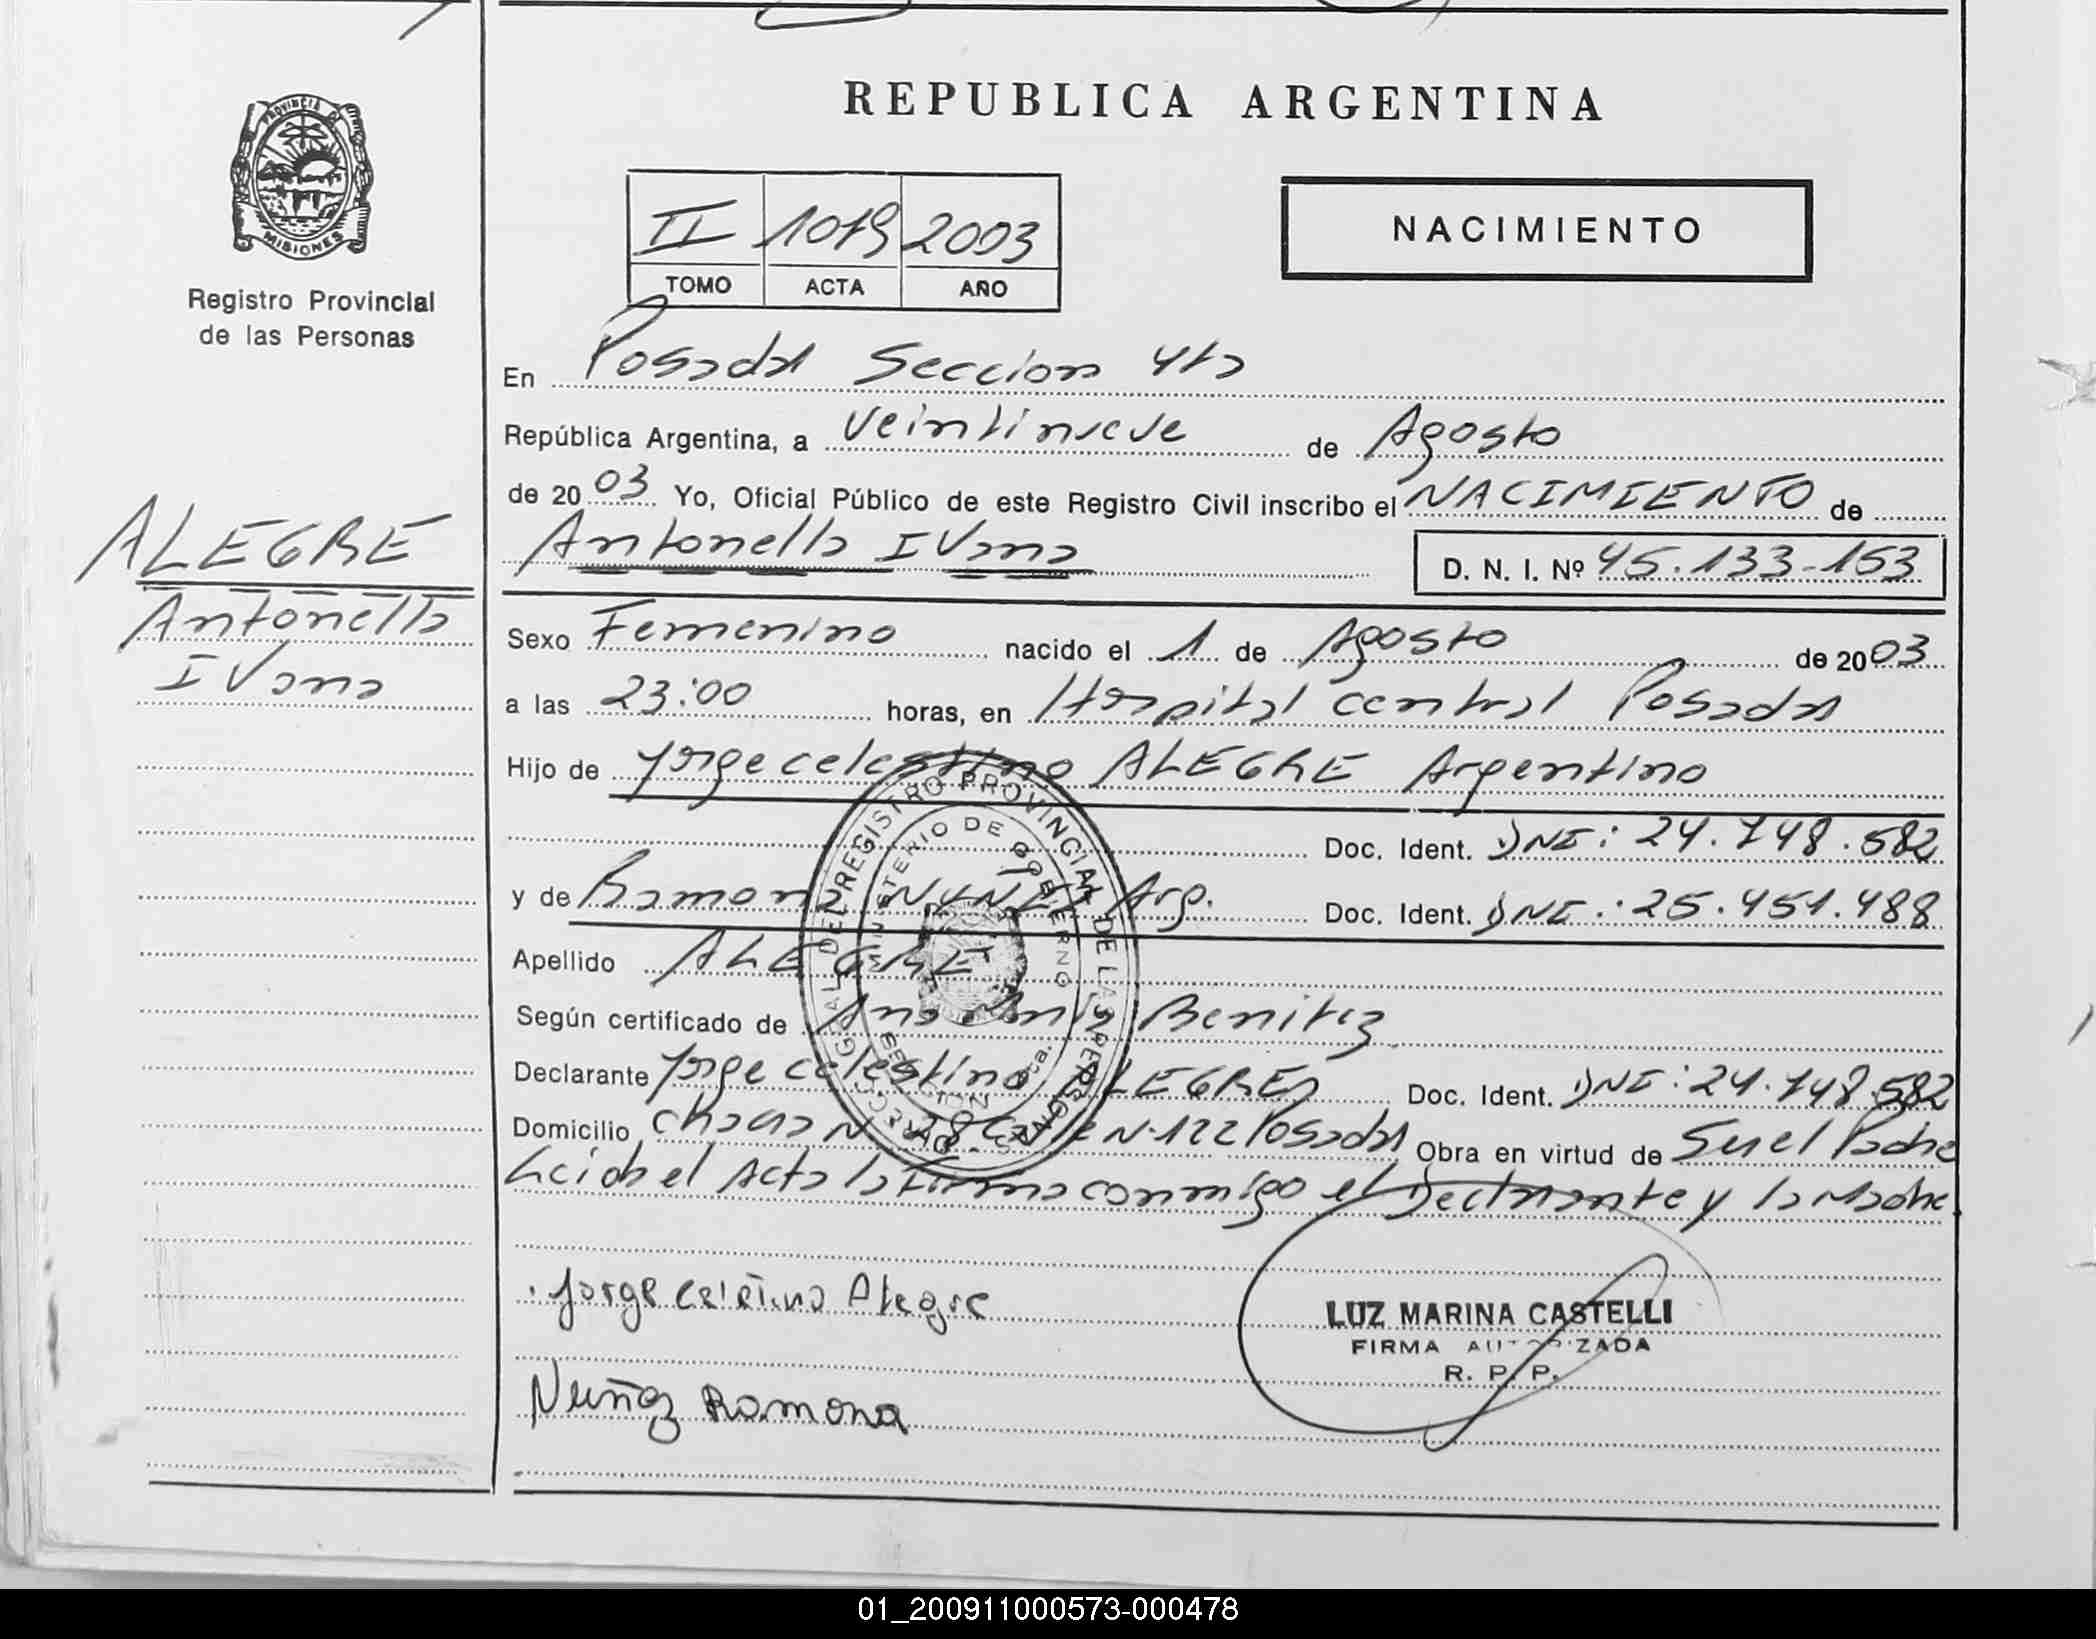 REPUBLICA ARGENTINA
PROVINCIA DE
MISIONES
Registro Provincial
de las Personas
II 1019 2003
TOMO ACTA AÑO
NACIMIENTO
En Posadas Seccion 4ta
República Argentina, a veintinueve de Agosto
de 20 03 Yo, Oficial Público de este Registro Civil inscribo el NACIMIENTO de
Antonella IVana D. N. I. Nº 45.133-153
ALEGRE
Antonella
IVana
Sexo Femenino nacido el 1 de Agosto de 20 03
a las 23:00 horas, en Hospital central Posadas
Hijo de Jorge celestino ALEGRE Argentino
Doc. Ident. DNI: 24.748.582
y de Ramona NUÑEZ Arg. Doc. Ident. DNI.: 25.451.488
Apellido ALEGRE
Según certificado de Ana María Benitez
Declarante Jorge celestino ALEGRE Doc. Ident. DNI: 24.748.582
Domicilio chacra N Posadas Obra en virtud de Ser el Padre
Leida el Acta la Firma conmigo el Declarante y la Madre.
REGISTRO PROVINCIAL DE LAS PERSONAS
MINISTERIO DE GOBIERNO
SECCION 4ta.
Jorge Celestino Alegre
LUZ MARINA CASTELLI
FIRMA AUTORIZADA
R. P. P.
Nuñez Ramona
01_200911000573-000478